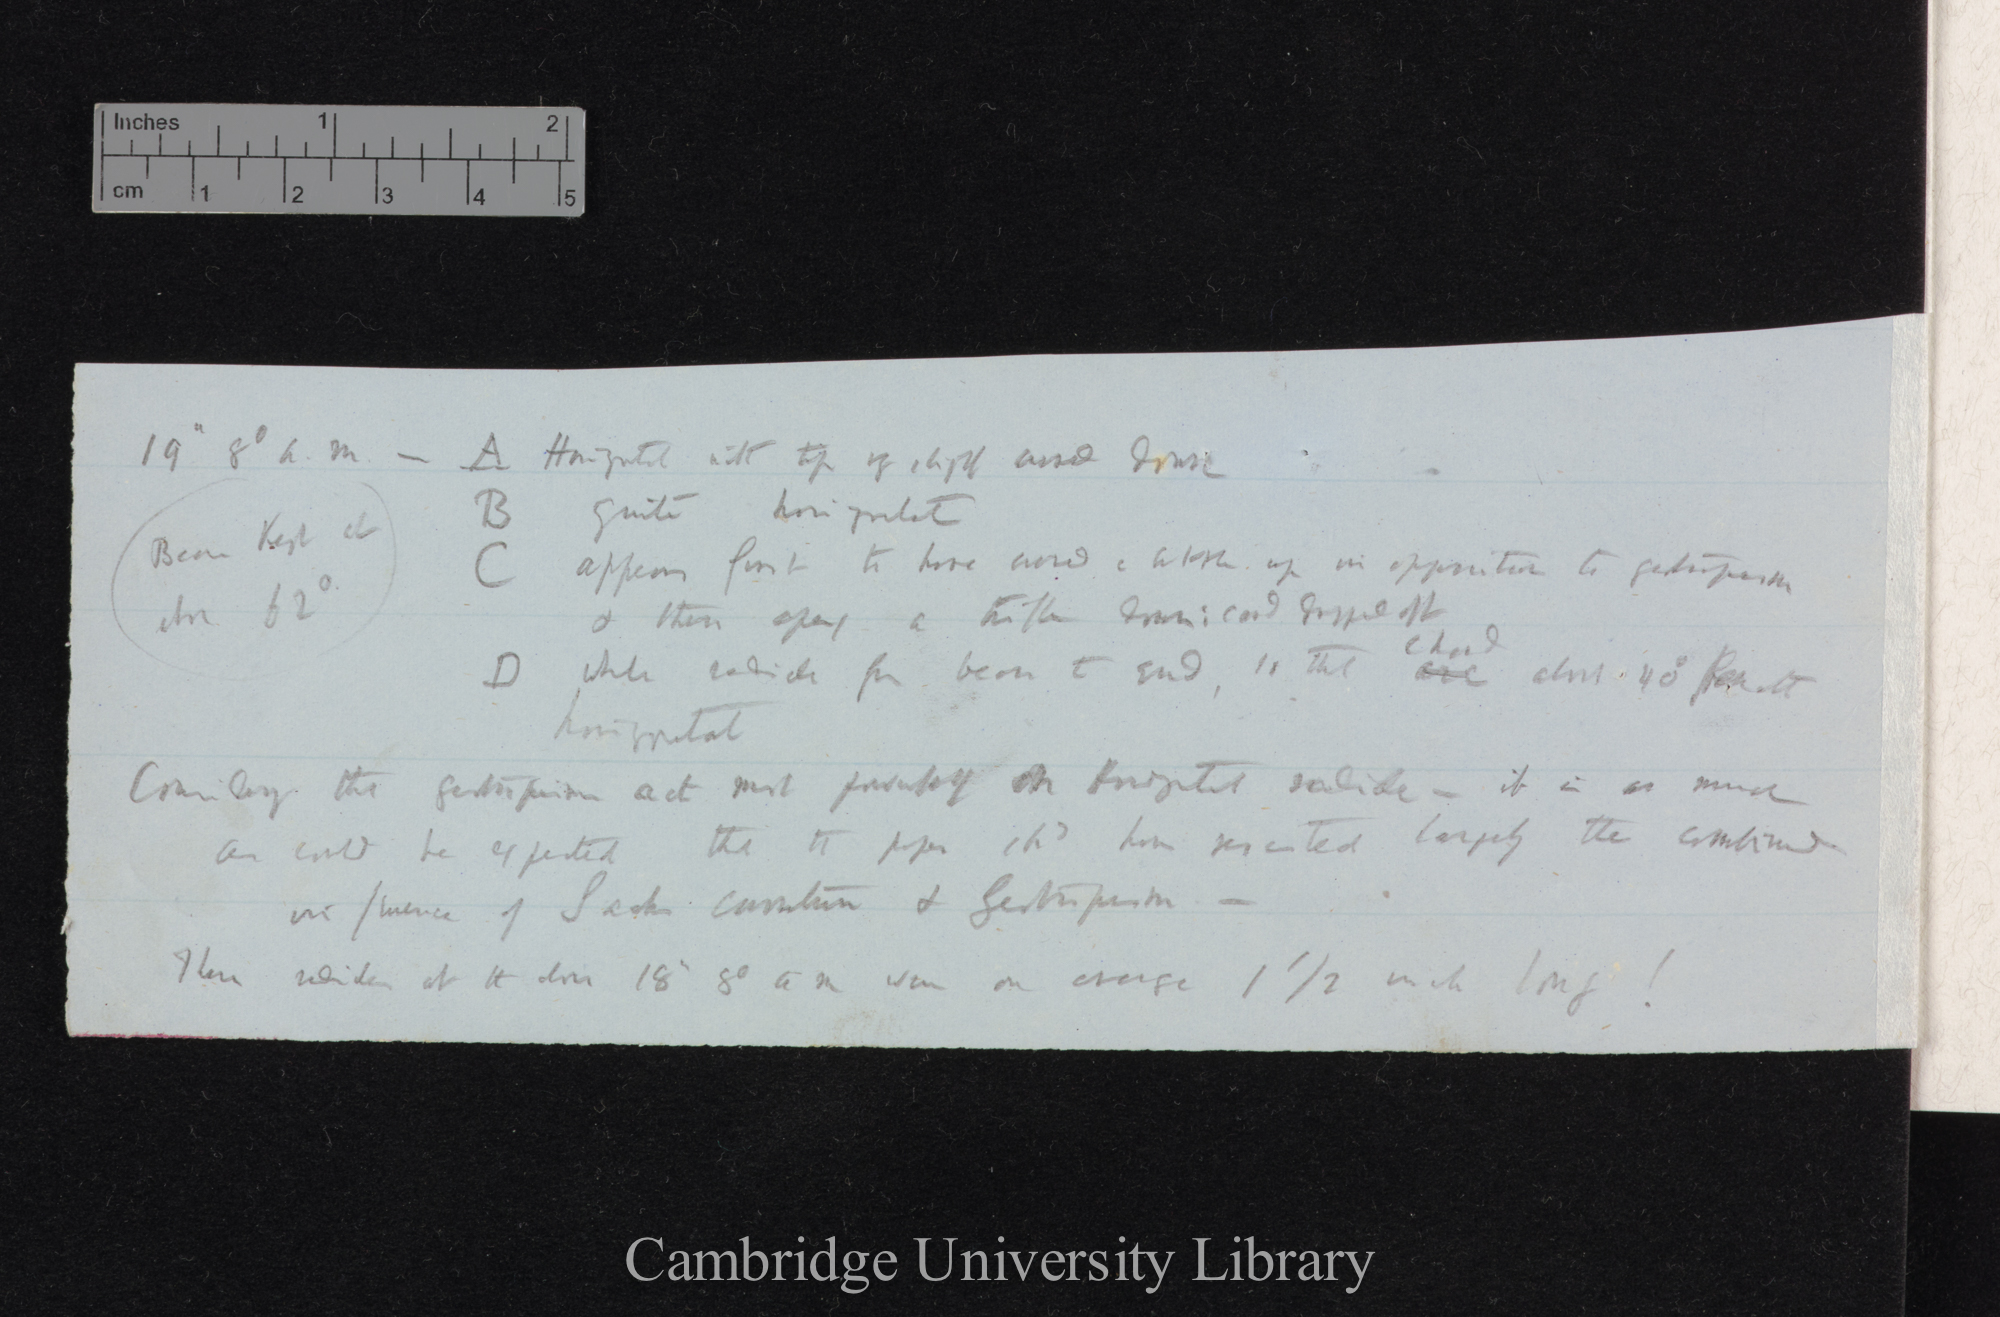 Inches 1 2
cm 1 2 3 4 5
19th 8° a.m. — A Horizontal with tip slightly curved down
B quite horizontal
Bean Kept at
C appears first to have curved up in opposition to geotropism
abov 62°
& then a trifle down: card dropped off
D whole radicle from bean to end, is the arc chord about 40° beneath
horizontal
Considering that geotropism acts most powerfully on horizontal radicle — it is as much
as could be expected that the paper shd have resisted largely the combined
influence of Sachs curvature & Geotropism —
These radicles at the 18th 8° a m were on average 1 1/2 inch long!
Cambridge University Library